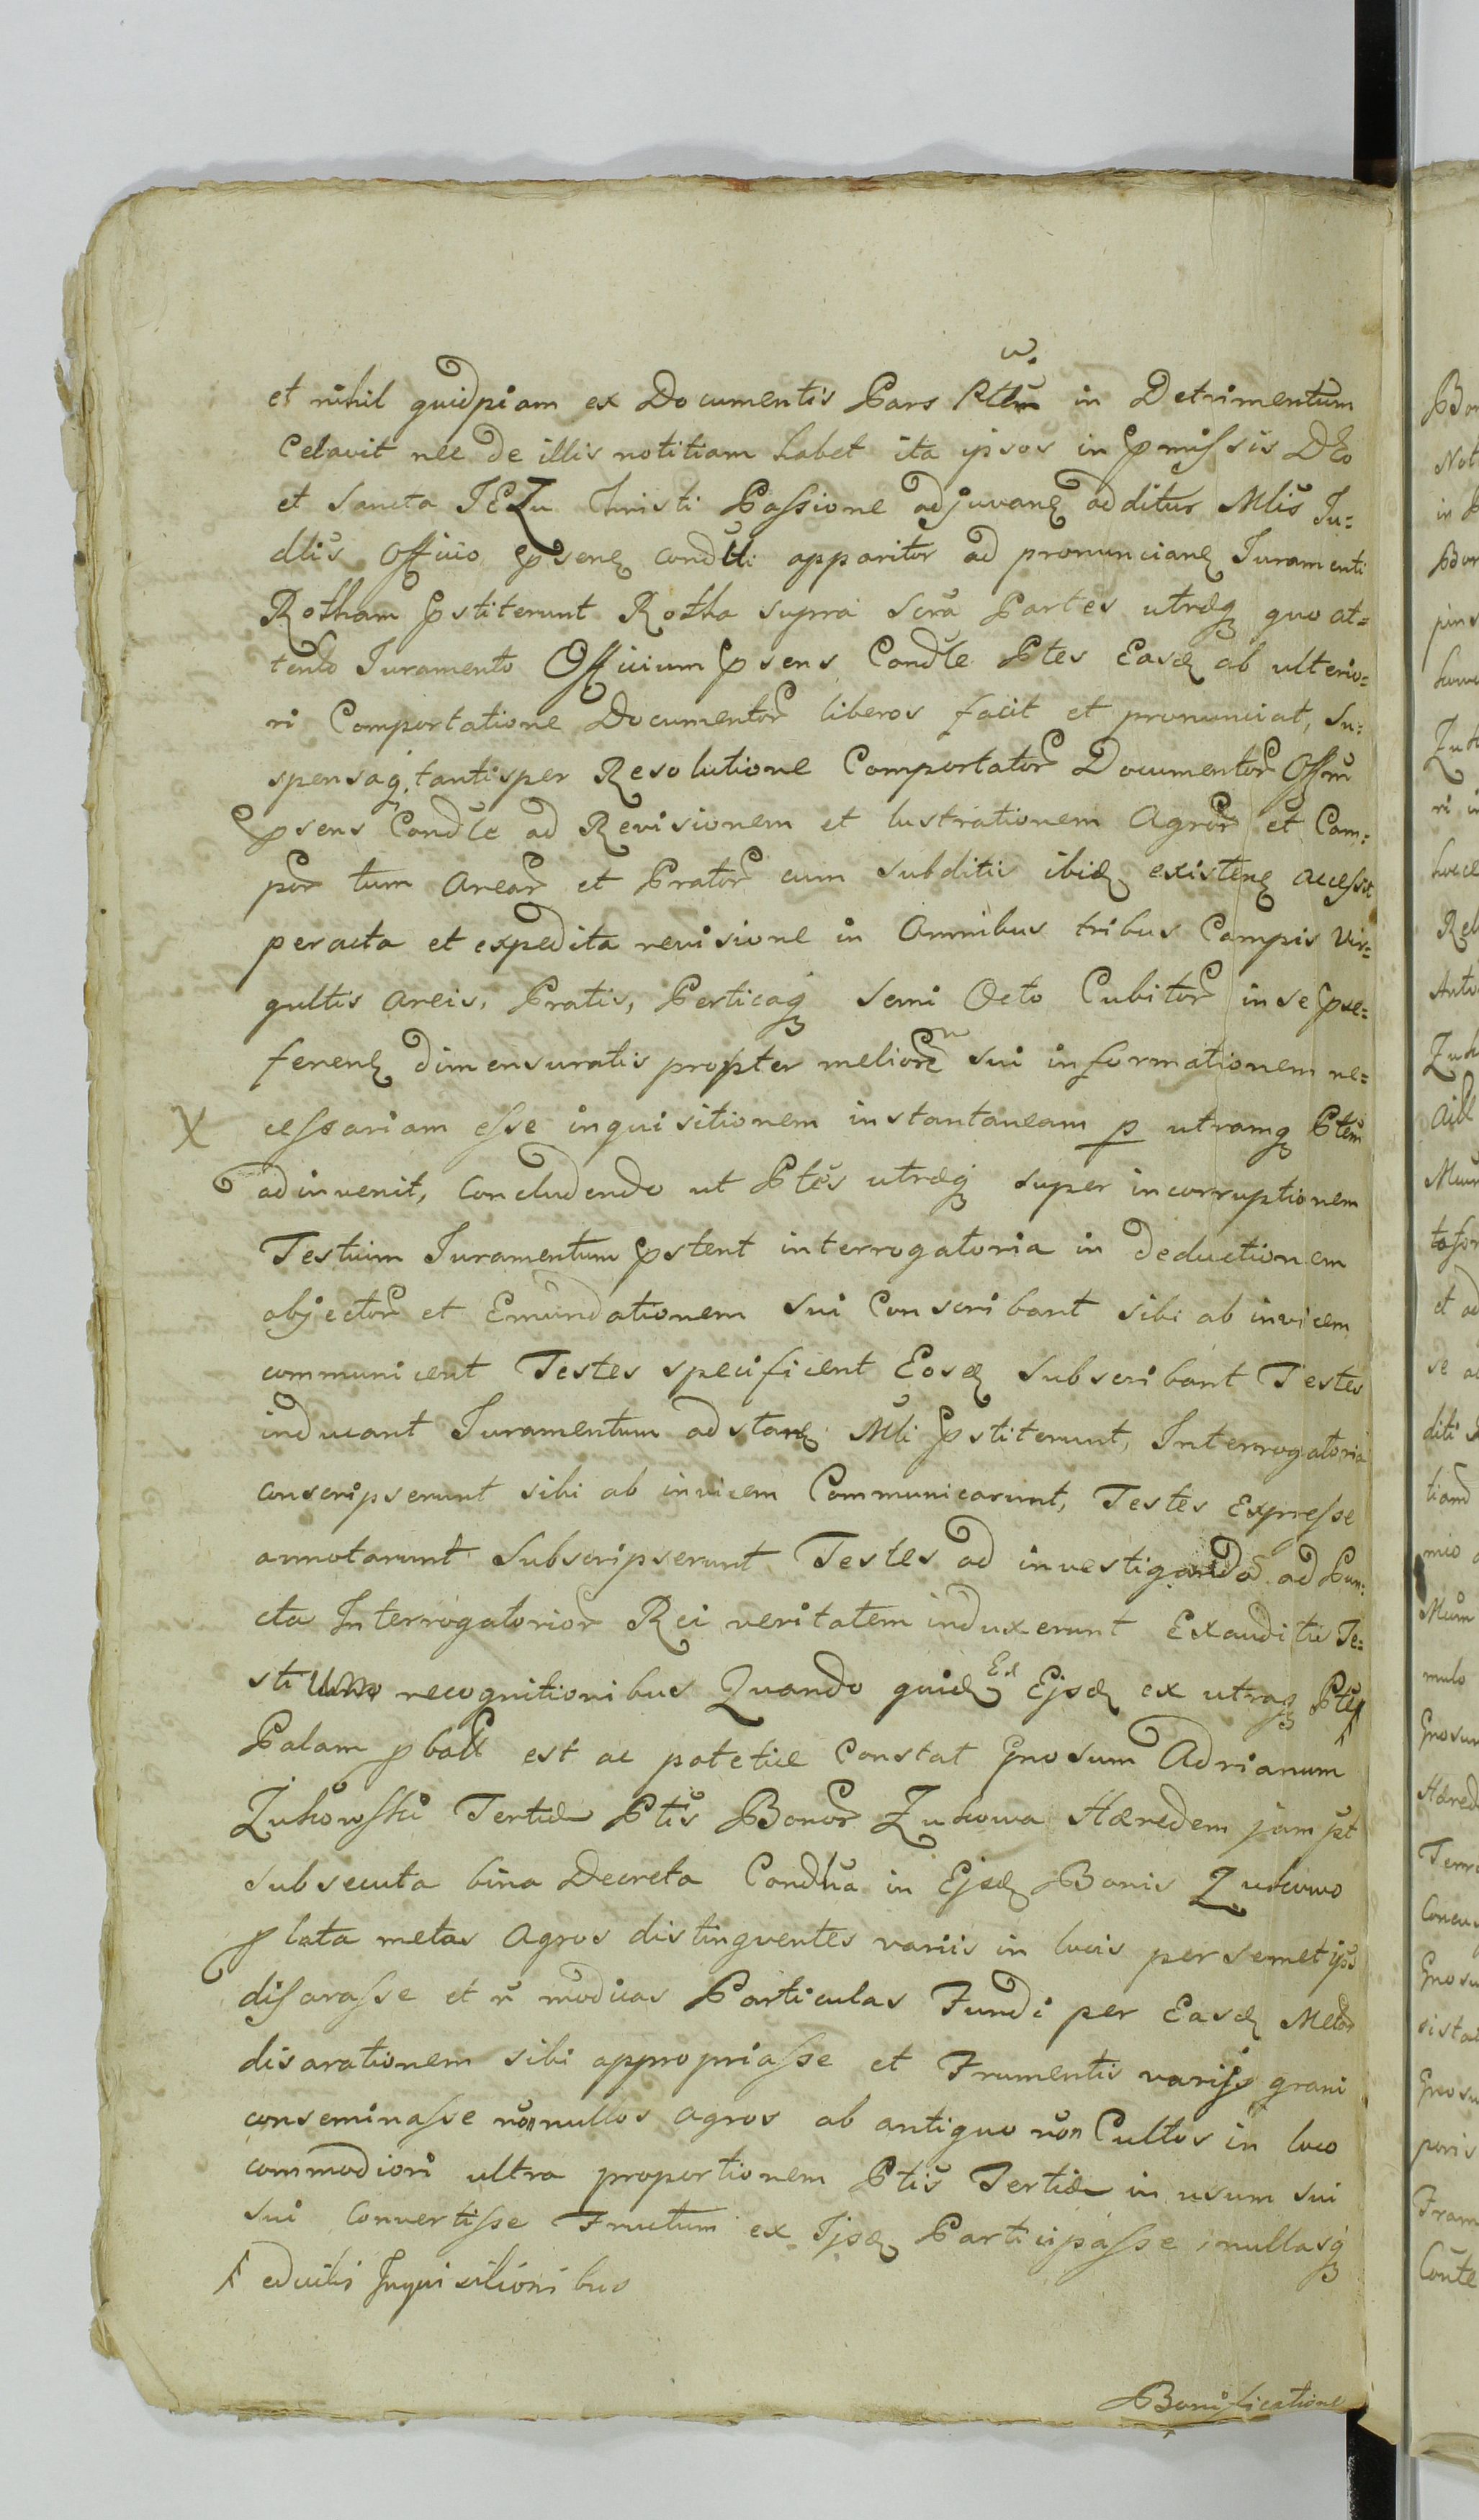 et nihil quidpiam ex Documentis Pars Ptem in Detrimentum
Celavit nec de illis notitiam habet ita ipsos in pmissis DEo
et Sancta JEZu Christi Passione adjuvane additur Mlis Ju=
dlis Officio psene condli apparitor ad pronunciane Juramenti
Rotham pstiterunt Rotha supra Scra Partes utræq quo at=
tento Juramento Officium psens Condle Ptes Easd ab ulterio=
ri Comportatione Documentor liberos facit et pronunciat, Su=
spensaq tantisper Resolutione Comportator Documentor Offm
psens Condle ad Revisionem et lustrationem Agror et Cam=
por tum Arear et Prator cum subditis ibid existene accessit
peracta et expedita revisione in Omnibus tribus Campis Vir=
gultis Areis, Pratis, Perticaq Semi Octo Cubitor in se præ=
ferene dimensuratis propter meliore sui informationem ne=
cessariam esse inquisitionem instantaneam p utramq Ptem
adinvenit, concludendo ut Ptes utræq super incorruptionem
Testium Juramentum pstent interrogatoria in deductionem
objector et Emundationem sui Conscribant sibi ab invicem
communicent Testes specificent Eosd subscribant Testes
inducant Juramentum adstane Mli pstiterunt, Interrogatoria
conscripserunt sibi ab invicem Communicarunt, Testes Expresse
annotarunt Subscripserunt Testes ad investigando ad Pun=
cta Interrogatorior Rei veritatem induxerunt Exauditis Te=
stium recognitionibus Quando quid Ex Ejsd ex utraq Pte
Palam pbatt est ac patetice Constat Gnosum Adrianum
Żukowski Tertiæ Ptis Bonor Zukowa Hæredem jam pt
subsecuta bina Decreta Condlia in Ejsd Bonis Zukowo
plata metas Agros distinguentes variis in locis per semet ips
disarasse et n modicas Particulas Fundi per Easd Metar
disarationem sibi appropriasse et Frumentis varijs grani
conseminasse nonnullos agros ab antiquo non Cultos in loco
commodiori ultra proportionem Ptis Tertiæ in usum sui
sui Convertisse Fructum ex Ijsd Participasse, nullasq
eductis Inquisitionibus
Bonificatione